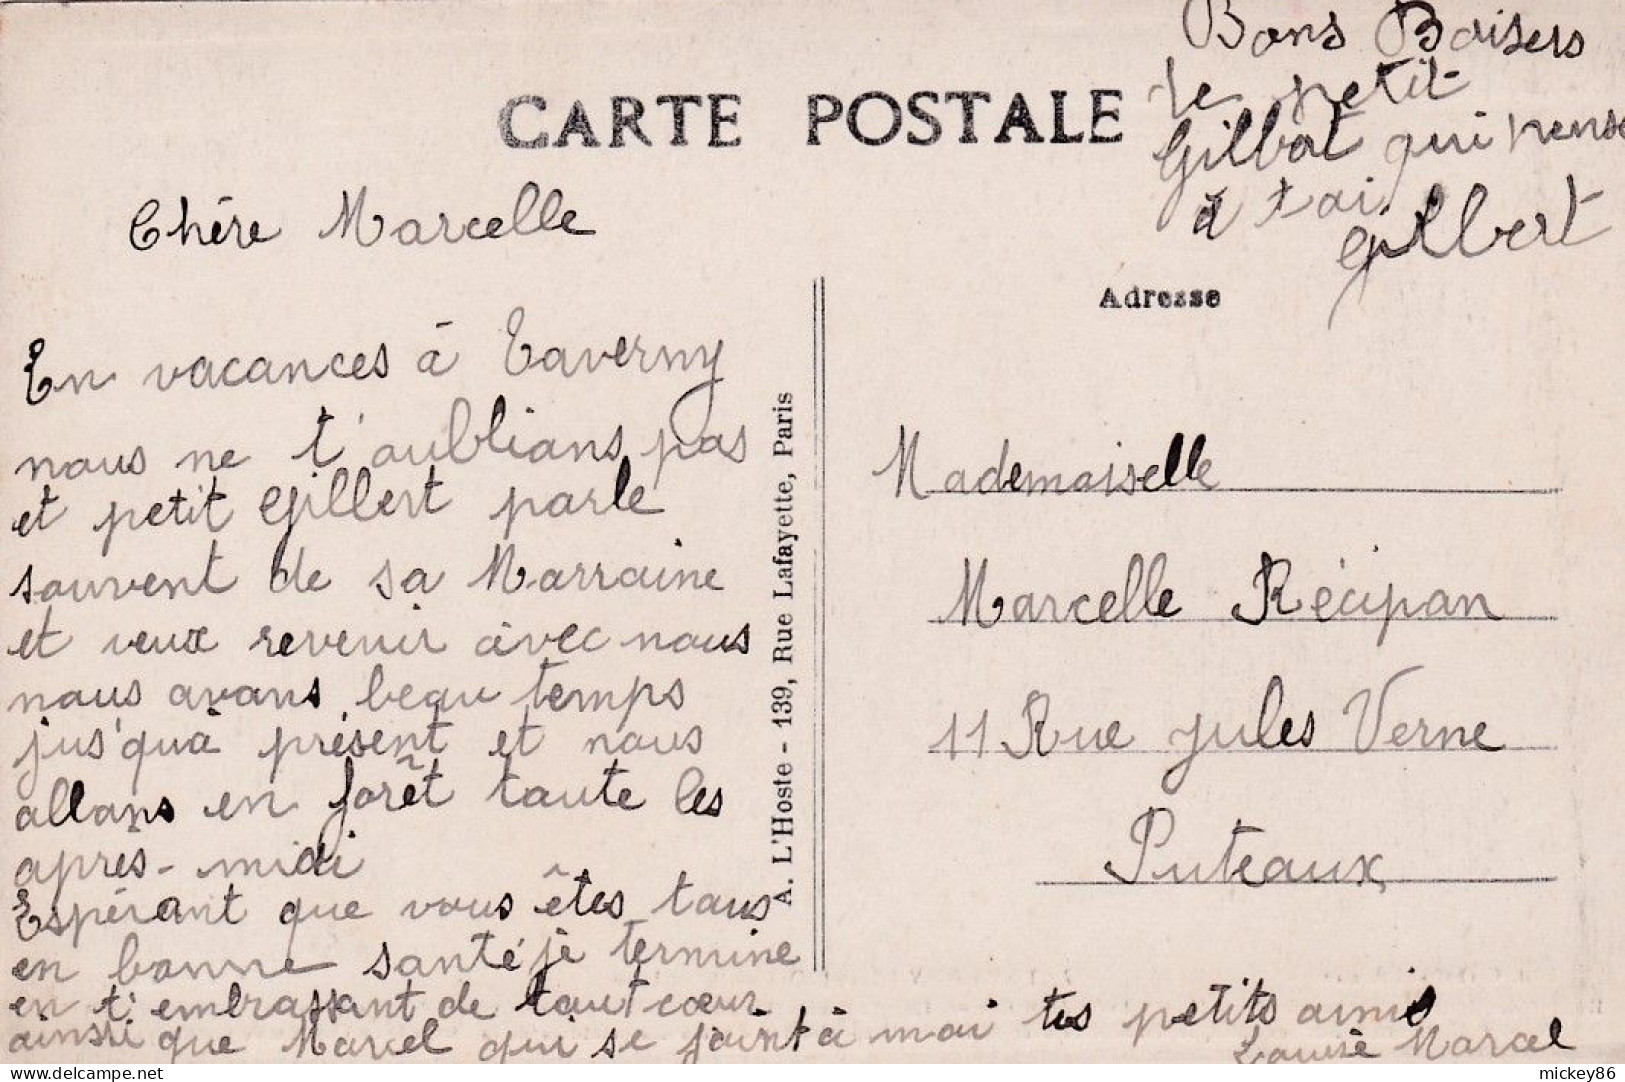 Bons Baisers
de petit
Gilbert qui pense
à toi
Gilbert
CARTE POSTALE
Chère Marcelle
Adresse
En vacances à Taverny
nous ne t'oublions pas
et petit Gilbert parle
souvent de sa Marraine
et veux revenir avec nous
nous avons beau temps
jus'quà présent et nous
allons en forêt toute les
après-midi
Espérant que vous êtes tous
en bonne santé je termine
en t'embrassant de tout cœur
ainssi que Marcel qui se joint à moi tes petits amis
Louise Marcel
A. L'Hoste - 139, Rue Lafayette, Paris
Mademoiselle
Marcelle Récipan
11 Rue Jules Verne
Puteaux
mickey86